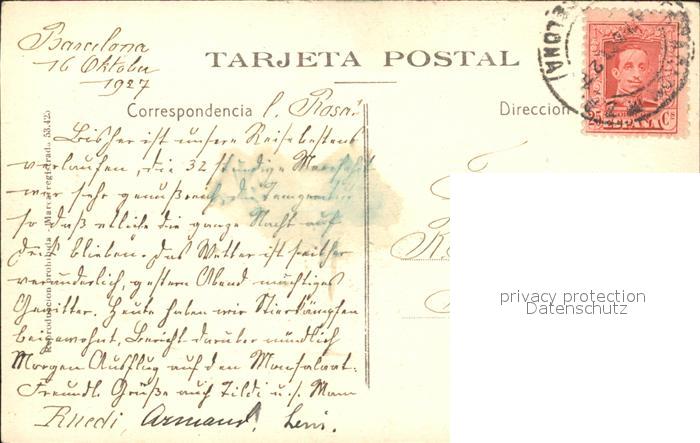 Barcelona
16 Oktober
1927
TARJETA POSTAL
Correspondencia
Direccion
l. Rosa!
Bisher ist unsere Reise bestens
verlaufen, die 32 stündige Meerfahrt
war sehr genußreich, die Temperatur
so daß etliche die ganze Nacht auf
Deck blieben. Das Wetter ist seither
veränderlich, gestern Abend mächtiges
Gewitter. Heute haben wir Stierkämpfen
beigewohnt, Bericht darüber mündlich
Morgen Ausflug auf den Monsalvat.
Freundl. Grüße auch Tildi u. s. Mann
Ruedi, Armand, Leni.
Reproduccion prohibida - Marca registrada 53.425
25 Cs
ESPAÑA
privacy protection
Datenschutz